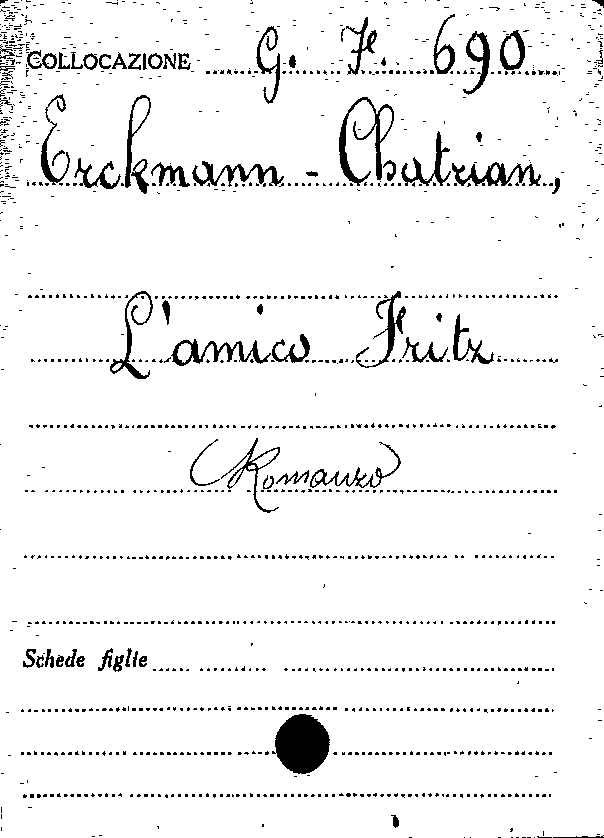 COLLOCAZIONE G. F. 690
Erckmann - Chatrian,
L'amico Fritz
(Romanzo)
Schede figlie